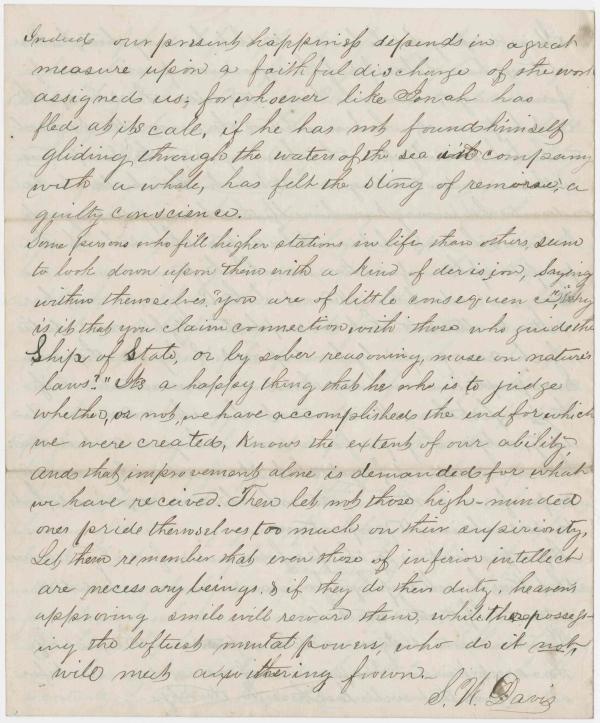 Indeed our present happiness depends in a great
measure upon a faithful discharge of the work
assigned us; for whoever like Jonah has
fled at its call, if he has not found himself
gliding through the waters of the sea in company
with a whale, has felt the sting of remorse, a
guilty conscience.
Some persons who fill higher stations in life than others, seem
to look down upon them with a kind of derision, saying
within themselves, "you are of little consequence," "why
is it that you claim connection with those who guide the
Ship of State, or by sober reasoning, muse on nature's
laws?" Its a happy thing that he who is to judge
whether, or not, we have accomplished the end for which
we were created, knows the extent of our ability,
and that improvement alone is demanded for what
we have received. Then let not those high-minded
ones pride themselves too much on their supiriority,
Let them remember that even those of inferior intellect
are necessary beings. & if they do their duty, heaven's
approving smile will reward them, while those possess-
ing the loftiest mental powers, who do it not,
will meet a withering frown.
S. W. Davis